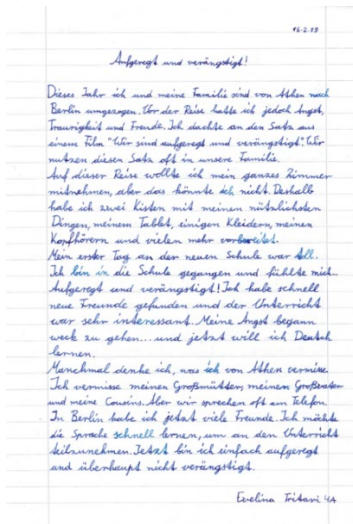 16.2.19
Aufgeregt und verängstigt!
Dieses Jahr ich und meine Familie sind von Athen nach
Berlin umgezogen. Vor der Reise hatte ich jedoch Angst,
Traurigkeit und Freude. Ich dachte an den Satz aus
einem Film "Wir sind aufgeregt und verängstigt". Wir
nutzen diesen Satz oft in unsere Familie.
Auf dieser Reise wollte ich mein ganzes Zimmer
mitnehmen, aber das könnte ich nicht. Deshalb
habe ich zwei Kisten mit meinen nützlichsten
Dingen, meinem Tablet, einigen Kleidern, meinen
Kopfhörern und vielen mehr vorbereitet.
Mein erster Tag an der neuen Schule war toll.
Ich bin in die Schule gegangen und fühlte mich...
Aufgeregt und verängstigt! Ich habe schnell
neue Freunde gefunden und der Unterricht
war sehr interessant. Meine Angst begann
weck zu gehen... und jetzt will ich Deutsch
lernen.
Manchmal denke ich, was ich von Athen vermisse.
Ich vermisse meinen Großmütter, meinem Großvater
und meine Cousins. Aber wir sprechen oft am Telefon.
In Berlin habe ich jetzt viele Freunde. Ich möchte
die Sprache schnell lernen, um an den Unterricht
teilzunehmen. Jetzt bin ich einfach aufgeregt
und überhaupt nicht verängstigt.
Evelina Tritari 4A